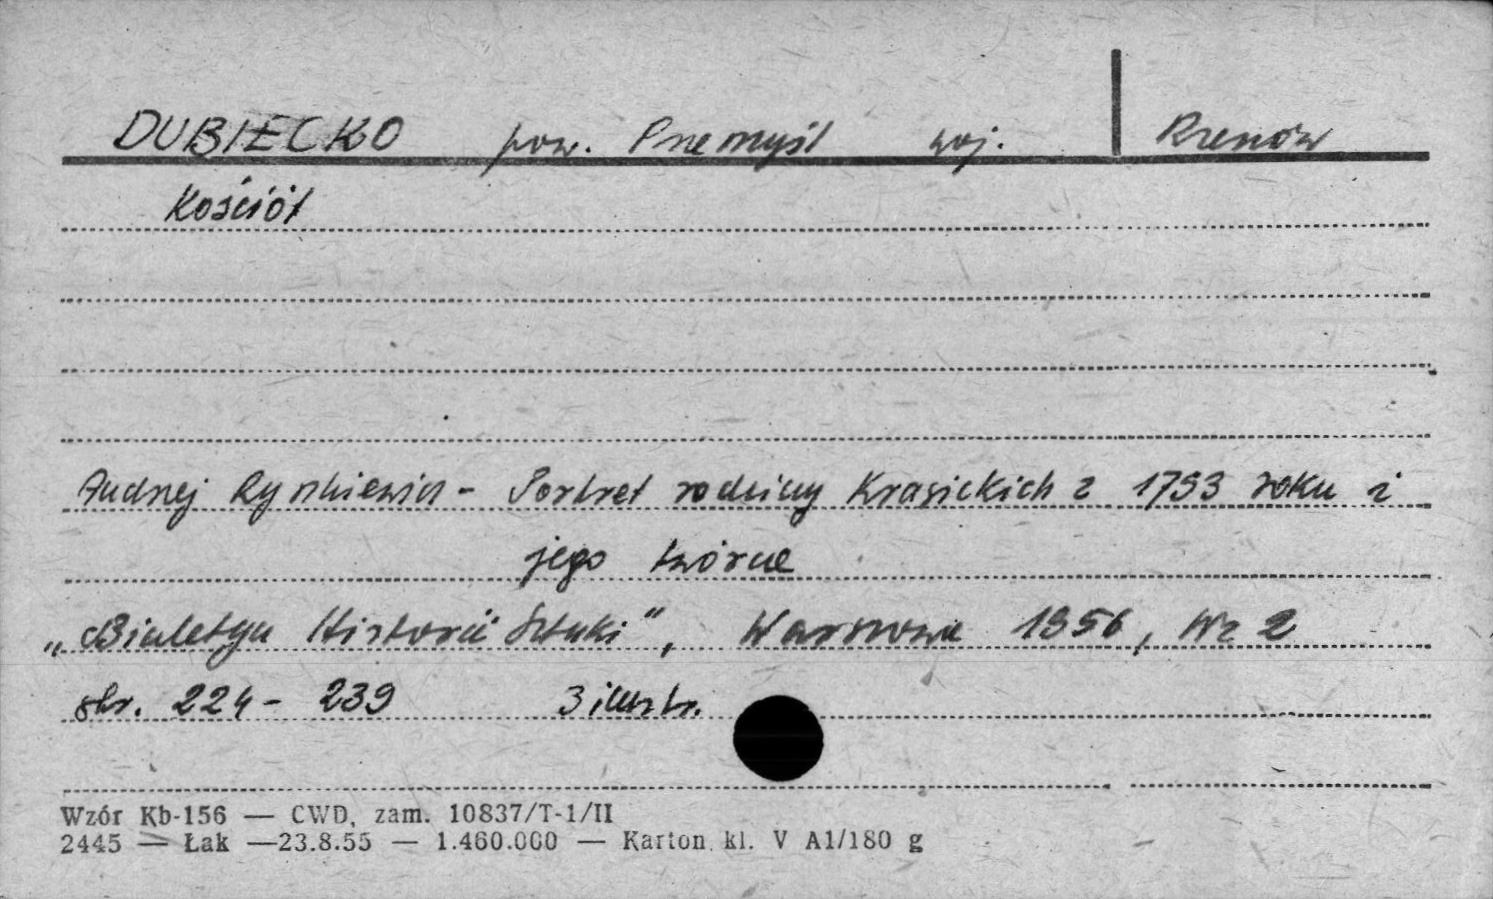 DUBIECKO pow. Przemyśl woj. Rzeszów
Kościół
Andrzej Ryszkiewicz - Portret rodziny Krasickich z 1753 roku i
jego twórca
„Biuletyn Historii Sztuki", Warszawa 1956, Nr 2
str. 224 - 239 3 ilustr.
Wzór Kb-156 — CWD, zam. 10837/T-1/II
2445 — Łak —23.8.55 — 1.460.000 — Karton kl. V A1/180 g